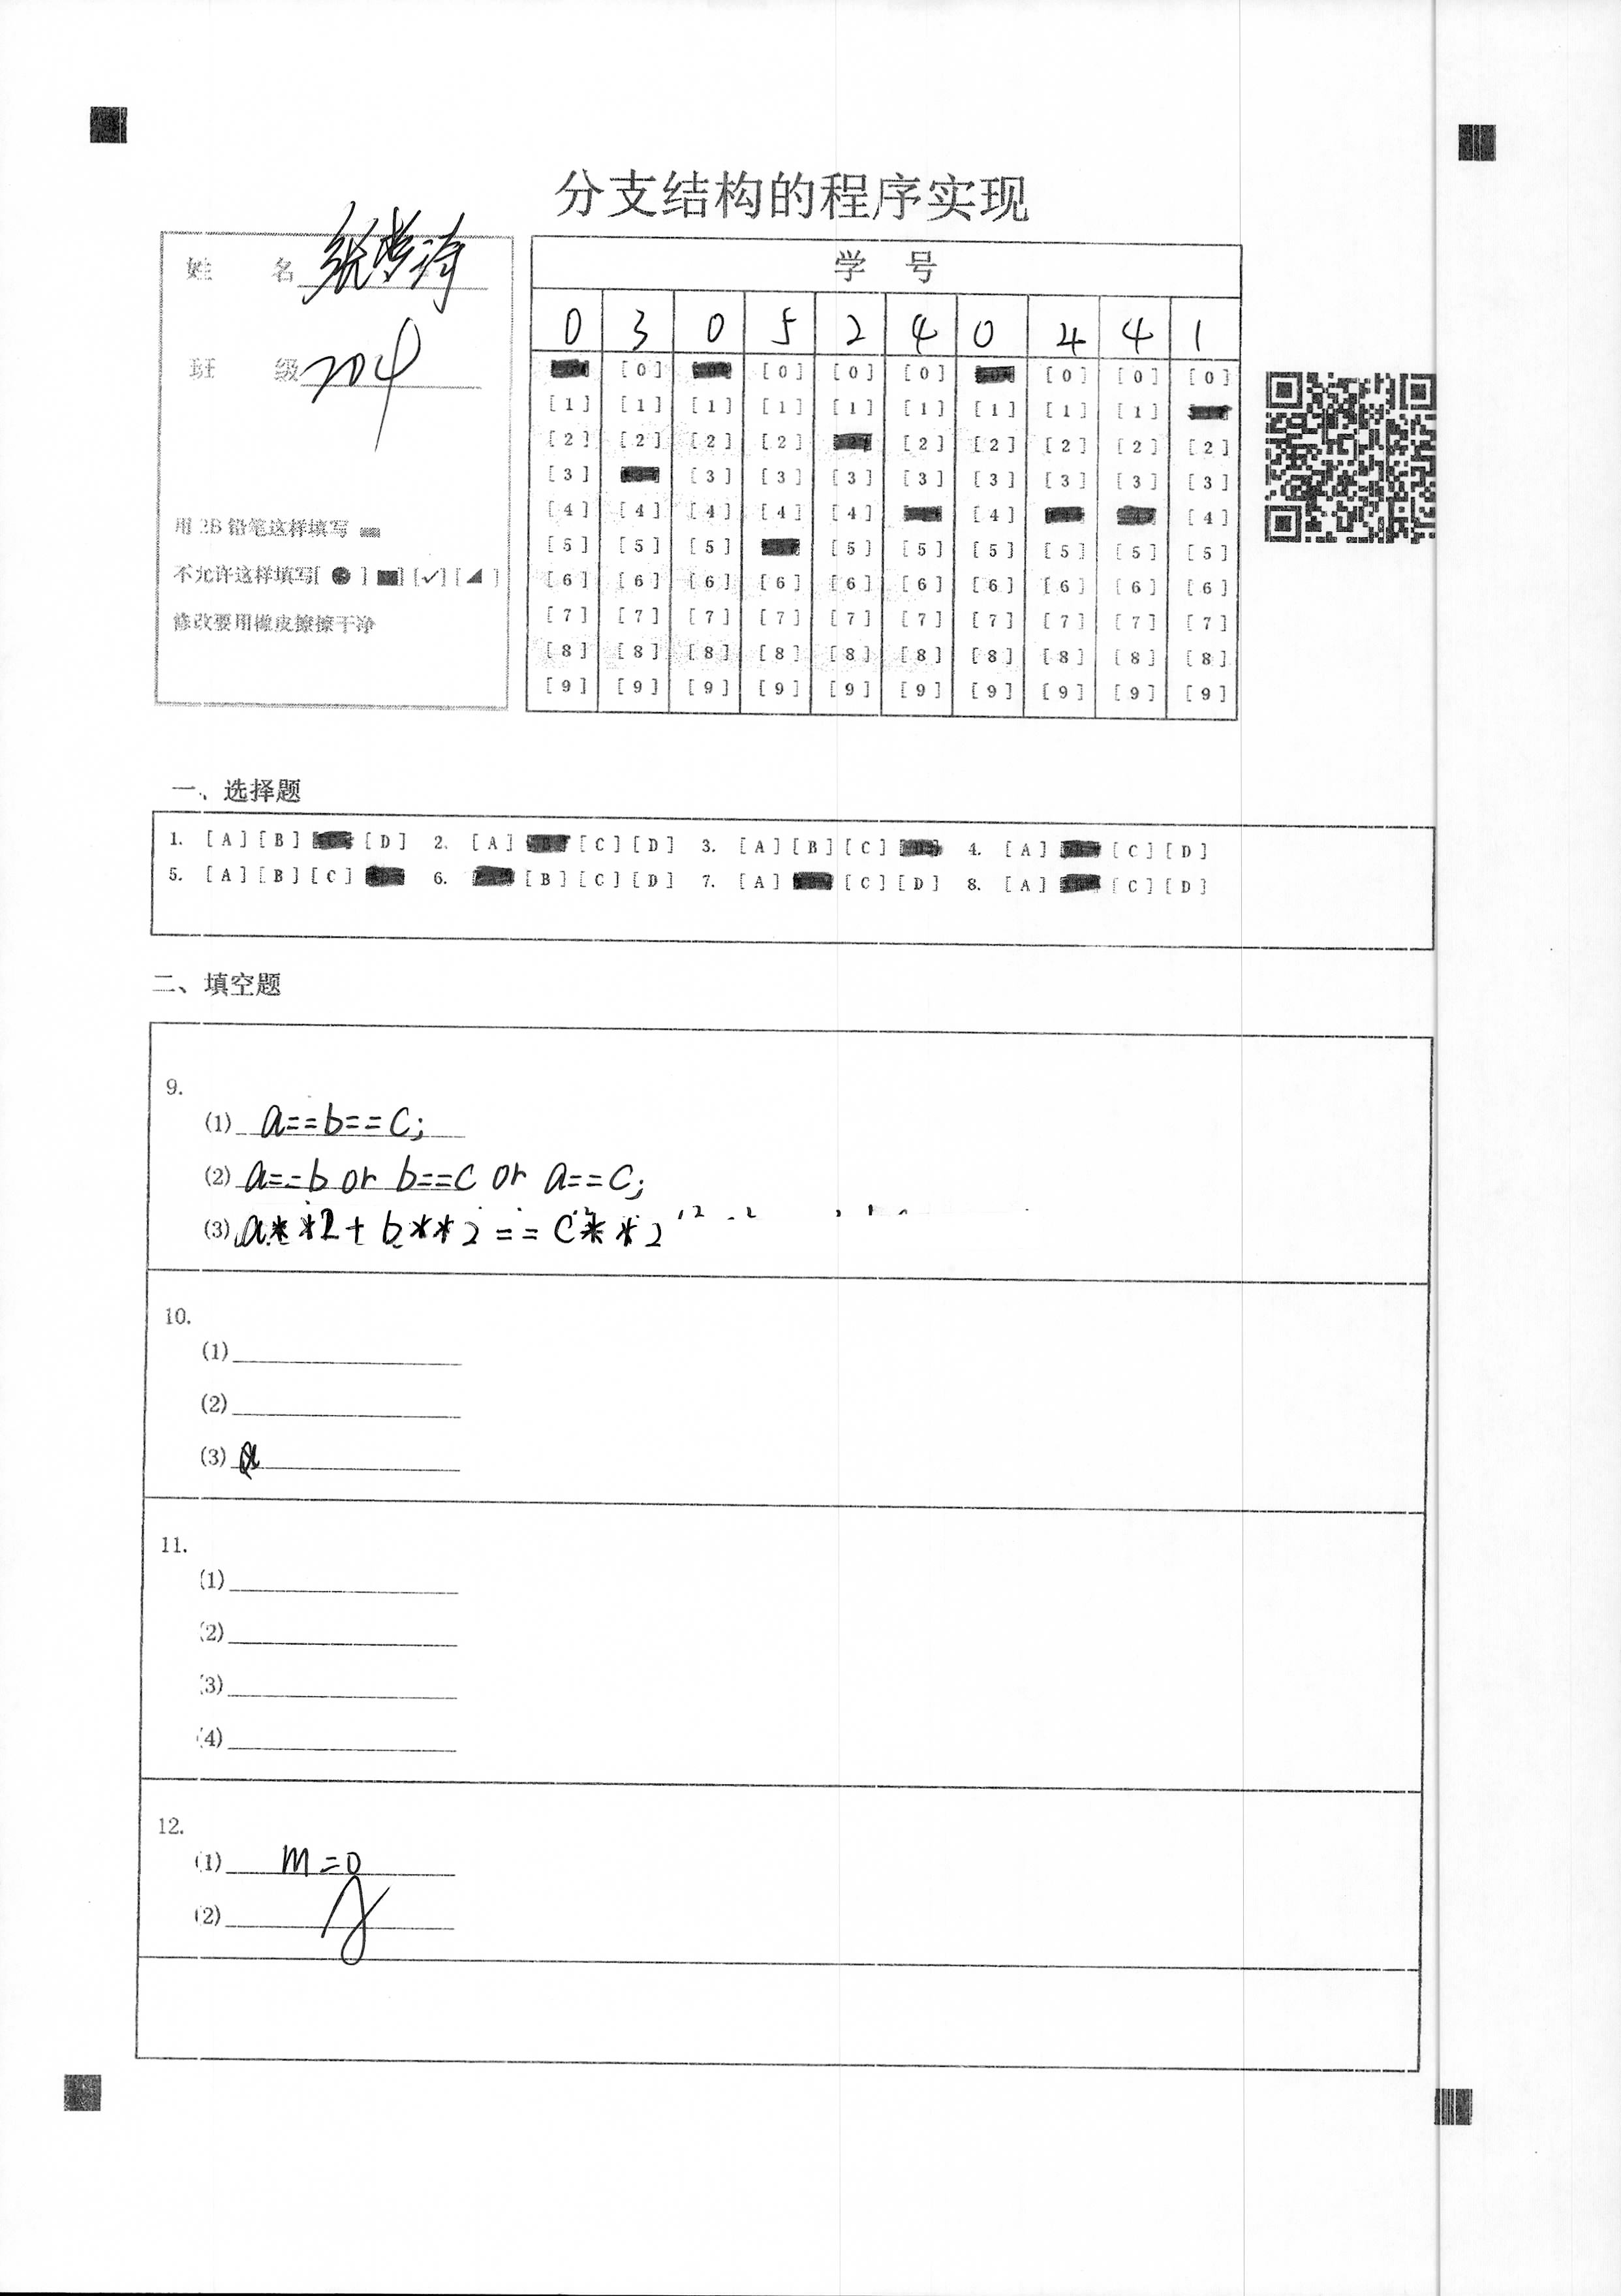 分支结构的程序实现
姓 名
班 级 204
用 2B 铅笔这样填写
不允许这样填写[ ● ] [■] [✓] [◢ ]
修改要用橡皮擦擦干净
学 号
0 3 0 5 2 4 0 4 4 1
[0] [0] [0] [0] [0] [0] [0]
[1] [1] [1] [1] [1] [1] [1] [1] [1]
[2] [2] [2] [2] [2] [2] [2] [2] [2]
[3] [3] [3] [3] [3] [3] [3] [3] [3]
[4] [4] [4] [4] [4] [4] [4]
[5] [5] [5] [5] [5] [5] [5] [5] [5]
[6] [6] [6] [6] [6] [6] [6] [6] [6] [6]
[7] [7] [7] [7] [7] [7] [7] [7] [7] [7]
[8] [8] [8] [8] [8] [8] [8] [8] [8] [8]
[9] [9] [9] [9] [9] [9] [9] [9] [9] [9]
一、选择题
1. [A] [B] [D] 2. [A] [C] [D] 3. [A] [B] [C] 4. [A] [C] [D]
5. [A] [B] [C] 6. [B] [C] [D] 7. [A] [C] [D] 8. [A] [C] [D]
二、填空题
9.
(1) a==b==c;
(2) a==b or b==c or a==c;
(3) a**2+b**2==c**2
10.
(1)
(2)
(3)
11.
(1)
(2)
(3)
(4)
12.
(1) m=0
(2)